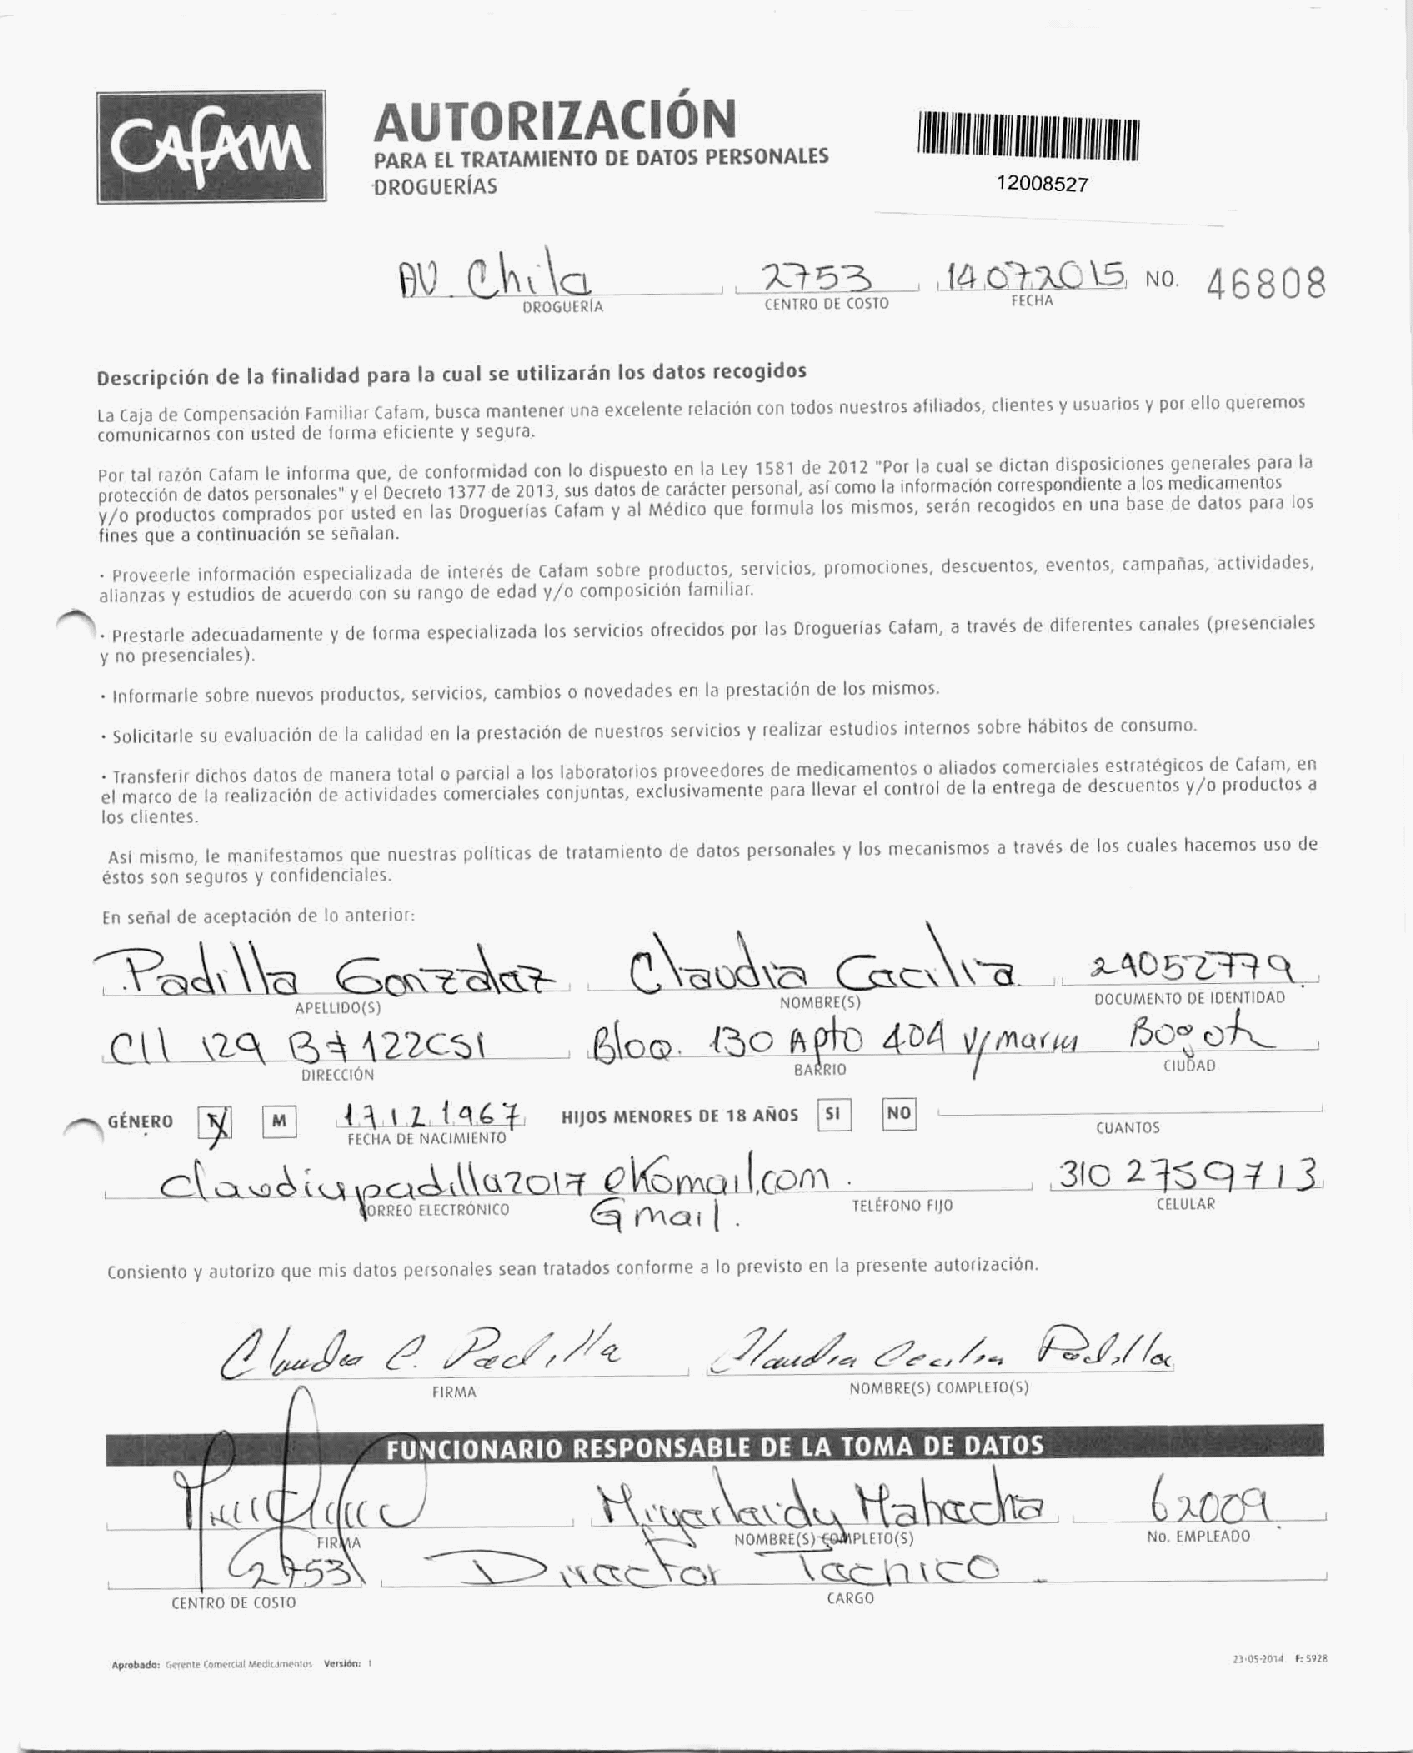 Cafam
AUTORIZACIÓN
PARA EL TRATAMIENTO DE DATOS PERSONALES
DROGUERÍAS
12008527
AV Chila 2753 14072015 NO. 46808
DROGUERÍA CENTRO DE COSTO FECHA
Descripción de la finalidad para la cual se utilizarán los datos recogidos
La Caja de Compensación Familiar Cafam, busca mantener una excelente relación con todos nuestros afiliados, clientes y usuarios y por ello queremos
comunicarnos con usted de forma eficiente y segura.
Por tal razón Cafam le informa que, de conformidad con lo dispuesto en la Ley 1581 de 2012 "Por la cual se dictan disposiciones generales para la
protección de datos personales" y el Decreto 1377 de 2013, sus datos de carácter personal, así como la información correspondiente a los medicamentos
y/o productos comprados por usted en las Droguerías Cafam y al Médico que formula los mismos, serán recogidos en una base de datos para los
fines que a continuación se señalan.
· Proveerle información especializada de interés de Cafam sobre productos, servicios, promociones, descuentos, eventos, campañas, actividades,
alianzas y estudios de acuerdo con su rango de edad y/o composición familiar.
· Prestarle adecuadamente y de forma especializada los servicios ofrecidos por las Droguerías Cafam, a través de diferentes canales (presenciales
y no presenciales).
· Informarle sobre nuevos productos, servicios, cambios o novedades en la prestación de los mismos.
· Solicitarle su evaluación de la calidad en la prestación de nuestros servicios y realizar estudios internos sobre hábitos de consumo.
· Transferir dichos datos de manera total o parcial a los laboratorios proveedores de medicamentos o aliados comerciales estratégicos de Cafam, en
el marco de la realización de actividades comerciales conjuntas, exclusivamente para llevar el control de la entrega de descuentos y/o productos a
los clientes.
Así mismo, le manifestamos que nuestras políticas de tratamiento de datos personales y los mecanismos a través de los cuales hacemos uso de
éstos son seguros y confidenciales.
En señal de aceptación de lo anterior:
Padilla Gonzalez Claudia Cecilia 24052779
APELLIDO(S) NOMBRE(S) DOCUMENTO DE IDENTIDAD
Cll 129 B# 122C51 Bloq. 130 Apto 404 V/maria Bogota
DIRECCIÓN BARRIO CIUDAD
GÉNERO X M 17.12.1967 HIJOS MENORES DE 18 AÑOS SI NO
FECHA DE NACIMIENTO CUANTOS
claudiapadilla2017 @ 310 2759713
CORREO ELECTRÓNICO Gmail. TELÉFONO FIJO CELULAR
Consiento y autorizo que mis datos personales sean tratados conforme a lo previsto en la presente autorización.
Claudia C. Padilla Claudia Cecilia Padilla
FIRMA NOMBRE(S) COMPLETO(S)
FUNCIONARIO RESPONSABLE DE LA TOMA DE DATOS
Mahecha 62009
FIRMA NOMBRE(S) COMPLETO(S) No. EMPLEADO
2753 Director Tecnico
CENTRO DE COSTO CARGO
Aprobado: Gerente Comercial Medicamentos Versión: 1 23-05-2014 F: 5928